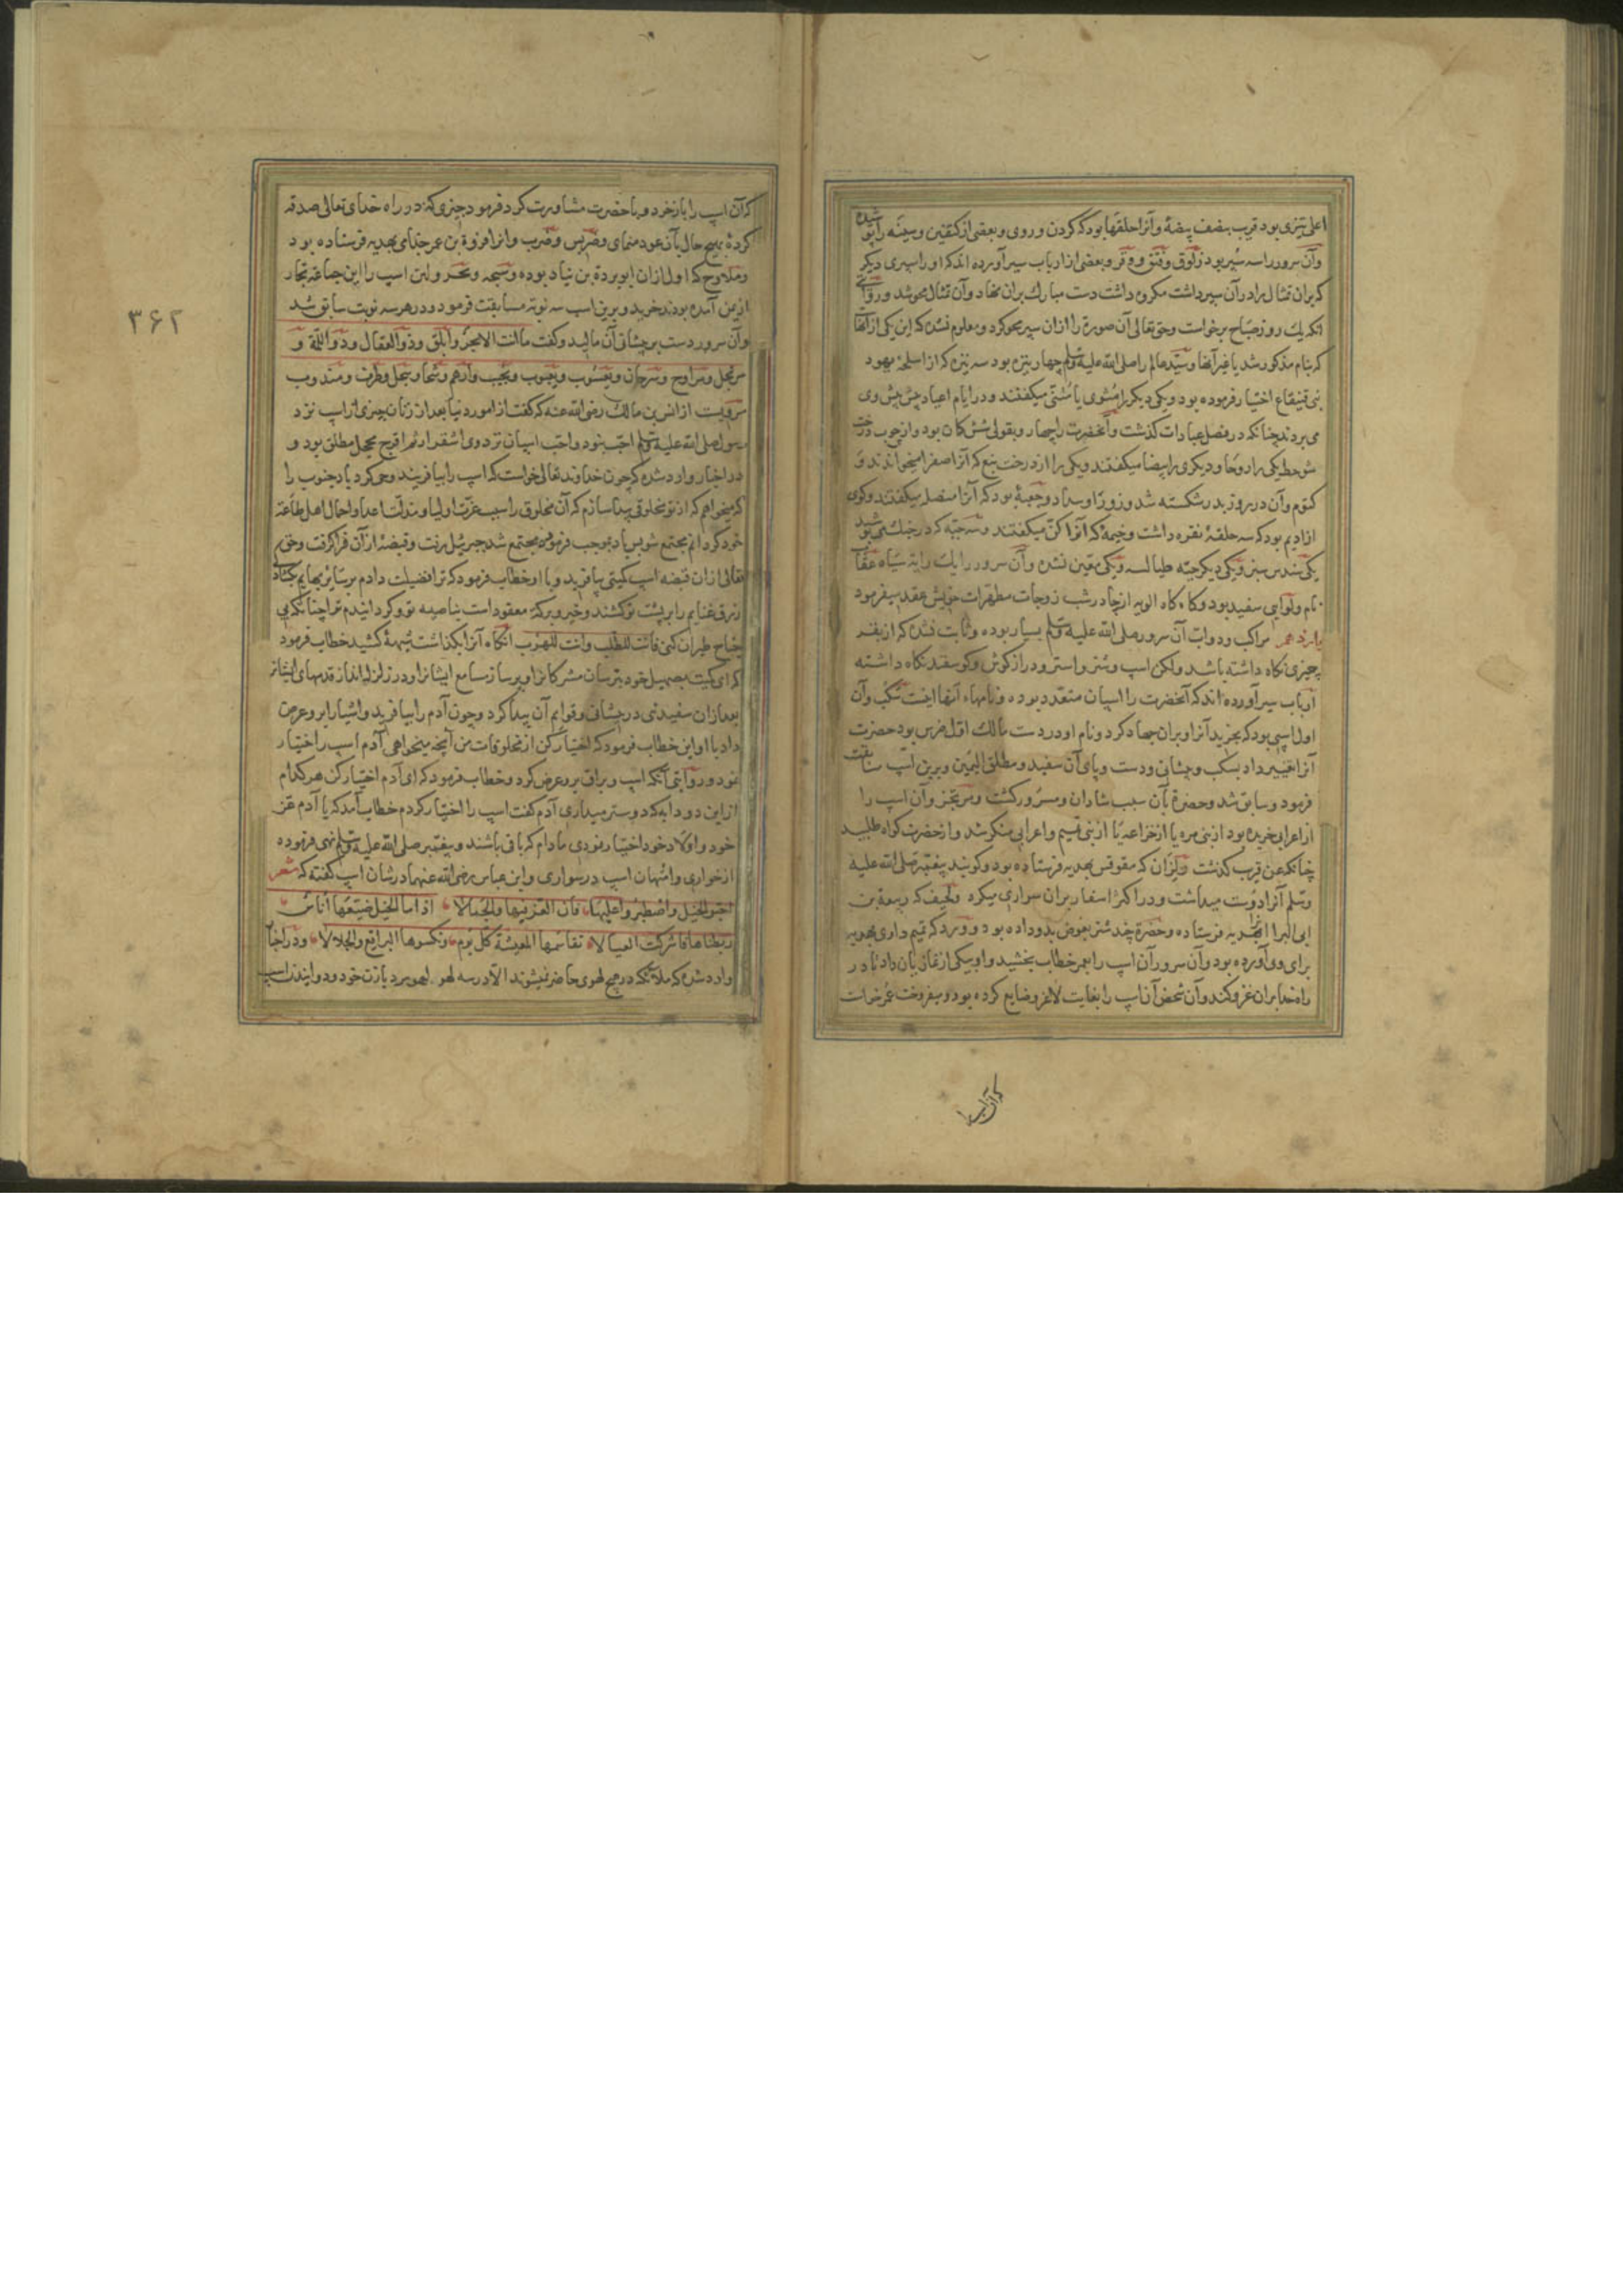 اعلی تیزی بود قریب بنصف بیضهٔ وآنرا حلقها بود که کردن و روی و بعضی از کتفین وسینه را پوشیده
وآن سرور را سه سپر بود زلوق وفتق و وفر و بعضی از ارباب سیر آورده اند که او را سپری دیکر
که بران تمثال بود آن سپر داشت مکروه داشت دست مبارک بران نهاد وآن تمثال محو شد و روایتی
آنکه یک روز صباح برخواست وحق تعالی آن صورة را ازان سپر محو کرد و معلوم نشده که این یکی ازآنها
که بنام مذکور شد یا غیر آنها و سید عالم را صلی الله علیه وسلم چهار نیزه بود سه نیزه که از اسلحهٔ یهود
بنی قینقاع اختیار فرموده بود و یکی دیکر را مثوی یا مثنی میکفتند و در ایام اعیاد پیش پیش وی
می بردند چنانکه در فصل عبادات کذشت وآنحضرت را چهار و بقولی شش کمان بود واز چوب درخت
شوحط یکی را روحا و دیکری را بیضا میکفتند و یکی را از درخت نبع که آنرا صفرا میخواندند و
کتوم وآن در روز بدر شکسته شد و زوراو سداد وجعبهٔ بود که آنرا متصله میکفتند وکمری
از ادیم بود که سه حلقهٔ نقره داشت وخیمهٔ که آنرا کن میکفتند وسه جبه که در جنک می پوشید
یکی سندس سبز ویکی دیکر جبه طیالسه ویکی معین نشده وآن سرور را یک رایه سیاه عقاب
نام ولوایی سفید بود وکاه کاه الویه از چادر شب زوجات مطهرات خویش عقد میفرمود
مراکب ودواب آن سرور صلی الله علیه وسلم بسیار بوده وثابت نشده که از بقر
چیزی نکاه داشته باشد ولکن اسپ وشتر واستر ودرازکوش وکوسفند نکاه داشته
ارباب سیر آورده اند که آنحضرت را اسپان متعدد بوده ونامهاء آنها اینست سکب وآن
اول اسپی بود که بخرید آنرا وبران جهاد کرد ونام او در دست مالک اول ضرس بود حضرت
آنرا تغییر داد بسکب وپیشانی ودست وپای آن سفید ومطلق الیمین وبرین اسپ سابقت
فرمود وسابق شد وحضرة بآن سبب شادان ومسرور کشت ومرتجز وآن اسپ را
از اعرابی خریده بود از بنی مره یا از خزاعه یا از بنی تمیم واعرابی منکر شد وازحضرت کواه طلبید
چنانکه عن قریب کذشت ولزاز آن که مقوقس بهدیه فرستاده بود وکویند پیغمبر صلی الله علیه
وسلم آنرا دوست میداشت ودر اکثر اسفار بران سواری میکرد ولحیف که ربیعة بن
ابی البرا بهدیه فرستاده وحضرة چند شتر بعوض بدو داده بود و ورد که تمیم داری بهدیه
برای وی آورده بود وآن سرور آن اسپ را بعمر خطاب بخشید واو بیکی ازغازیان داد تا در
راه خدا بران غزو کند وآن شخص آن اسپ را بغایت لاغر وضایع کرده بود ومیفروخت عمر خواست
که آن اسپ را
۳۶۲
که آن اسپ را بازخرد وبا حضرت مشاورت کرد فرمود چیزی که در راه خدای تعالی صدقه
کردهٔ بهیچ حال بآن عود منمای وضریس وضرب وانرا فروة بن عمر جذامی بهدیه فرستاده بود
وملاوح که اول ازان ابو بردة بن نیاد بوده وسبحه وبحر ولین اسپ را ازین جماعه تجار
ازیمن آمده بودند خرید وبرین اسپ سه نوبة مسابقت فرمود ودر هر سه نوبت سابق شد
وآن سرور دست بر پیشانی آن مالید وکفت ما انت الا بحر وابلق وذو العقال وذو اللمة و
مرتجل ومراوح وسرحان ویعسوب ویعبوب ونجیب وادهم وشحا وسجل وطرف ومندوب
مرویست از انس بن مالک رضی الله عنه که کفت از امور دنیا بعد از زنان چیزی ازاسپ نزد
رسول صلی الله علیه وسلم احب نبود واحب اسپان نزد وی اشقر ادهم اقرح محجل مطلق بود و
در اخبار وارد شده که چون خداوند تعالی خواست که اسپ را بیافریند وحی کرد باد جنوب را
که میخواهم که از تو مخلوقی پیدا سازم که آن مخلوق را سبب عزت اولیا ومذلت اعدا واجمال اهل طاعة
خود کردانم مجتمع شو پس باد بموجب فرموده مجتمع شد جبرئیل رفت وقبضهٔ ازآن فرا کرفت وحق
تعالی ازان قبضه اسپ کمیتی بیافرید وبا او خطاب فرمود که ترا فضیلت دادم بر سایر بهایم
رزق غنایم را بر پشت تو کشند وخیر وبرکة معقود است بناصیه تو وکردانیدم ترا چنانکه بی
جناح طیران کنی فانت للطلب وانت للهرب آنکاه آنرا بکذاشت شیهه کشید خطاب فرمود
که ای کمیت بصهیل خود بترسان مشرکانرا وپرساز مسامع ایشانرا ودر زلزله انداز قدمهای ایشانرا
بعد ازان سفیدئی در پیشانی وقوایم آن پیدا کرد وچون آدم را بیافرید واشیا را برو عرض
داد با او این خطاب فرمود که اختیار کن از مخلوقات من آنچه میخواهی آدم اسپ را اختیار
نمود ودر روایتی آنکه اسپ وبراق برو عرض کرد وخطاب فرمود که ای آدم اختیار کن هر کدام
ازاین دو دابه که دوستر میداری آدم کفت اسپ را اختیار کردم خطاب آمد که یا آدم عز
خود واولاد خود اختیار نمودی مادام که باقی باشند وپیغمبر صلی الله علیه وسلم نهی فرموده
ازخواری وامتهان اسپ در سواری وابن عباس رضی الله عنهما درشان اسپ کفته که شعر
احبوا الخیل واصطبروا علیها فان العز فیها والجمالا اذا ما الخیل ضیعها اناس
ربطناها فاشرکت العیالا نقاسمها المعیشة کل یوم ونکسوها البراقع والجلالا ودر اخبار
وارد شده که ملائکه در هیچ لهوی حاضر نمیشوند الا در سه لهو لهو مرد بازن خود ودوانیدن اسپ